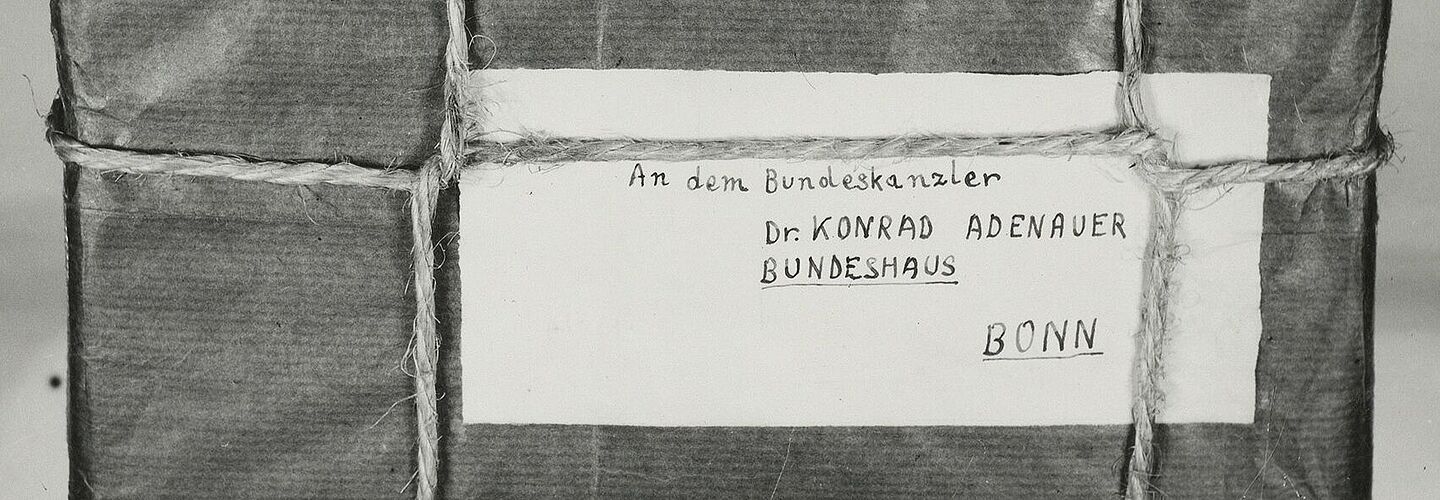 An dem Bundeskanzler
Dr. KONRAD ADENAUER
BUNDESHAUS
BONN